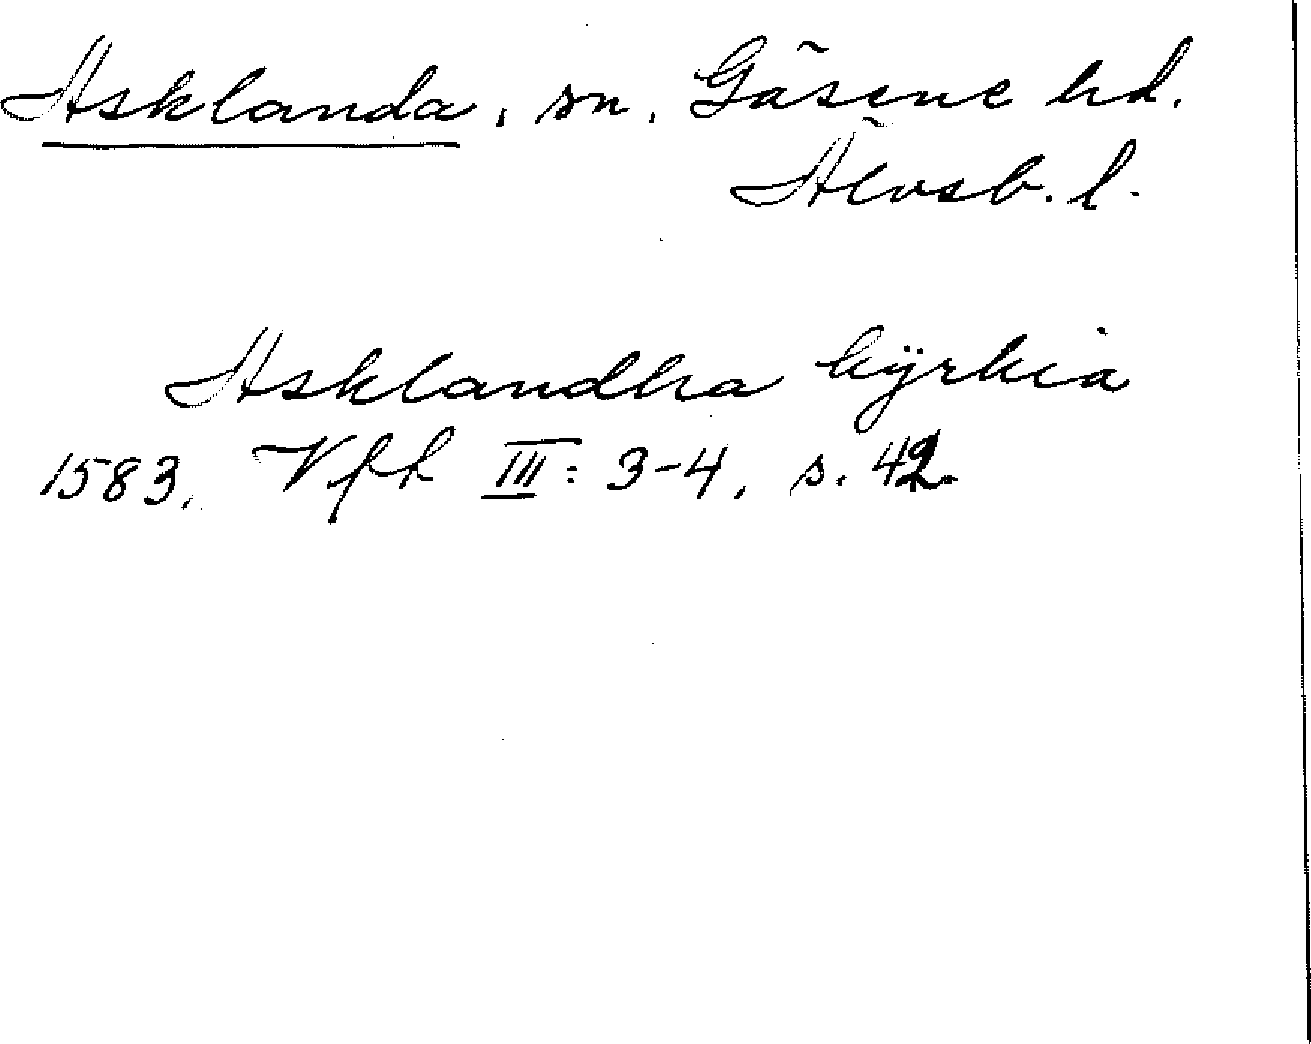 Asklanda, sn. Gäsene hd.
Älvsb. l.
Asklandha kÿrkia
1583. Vft III: 3-4, s. 42.